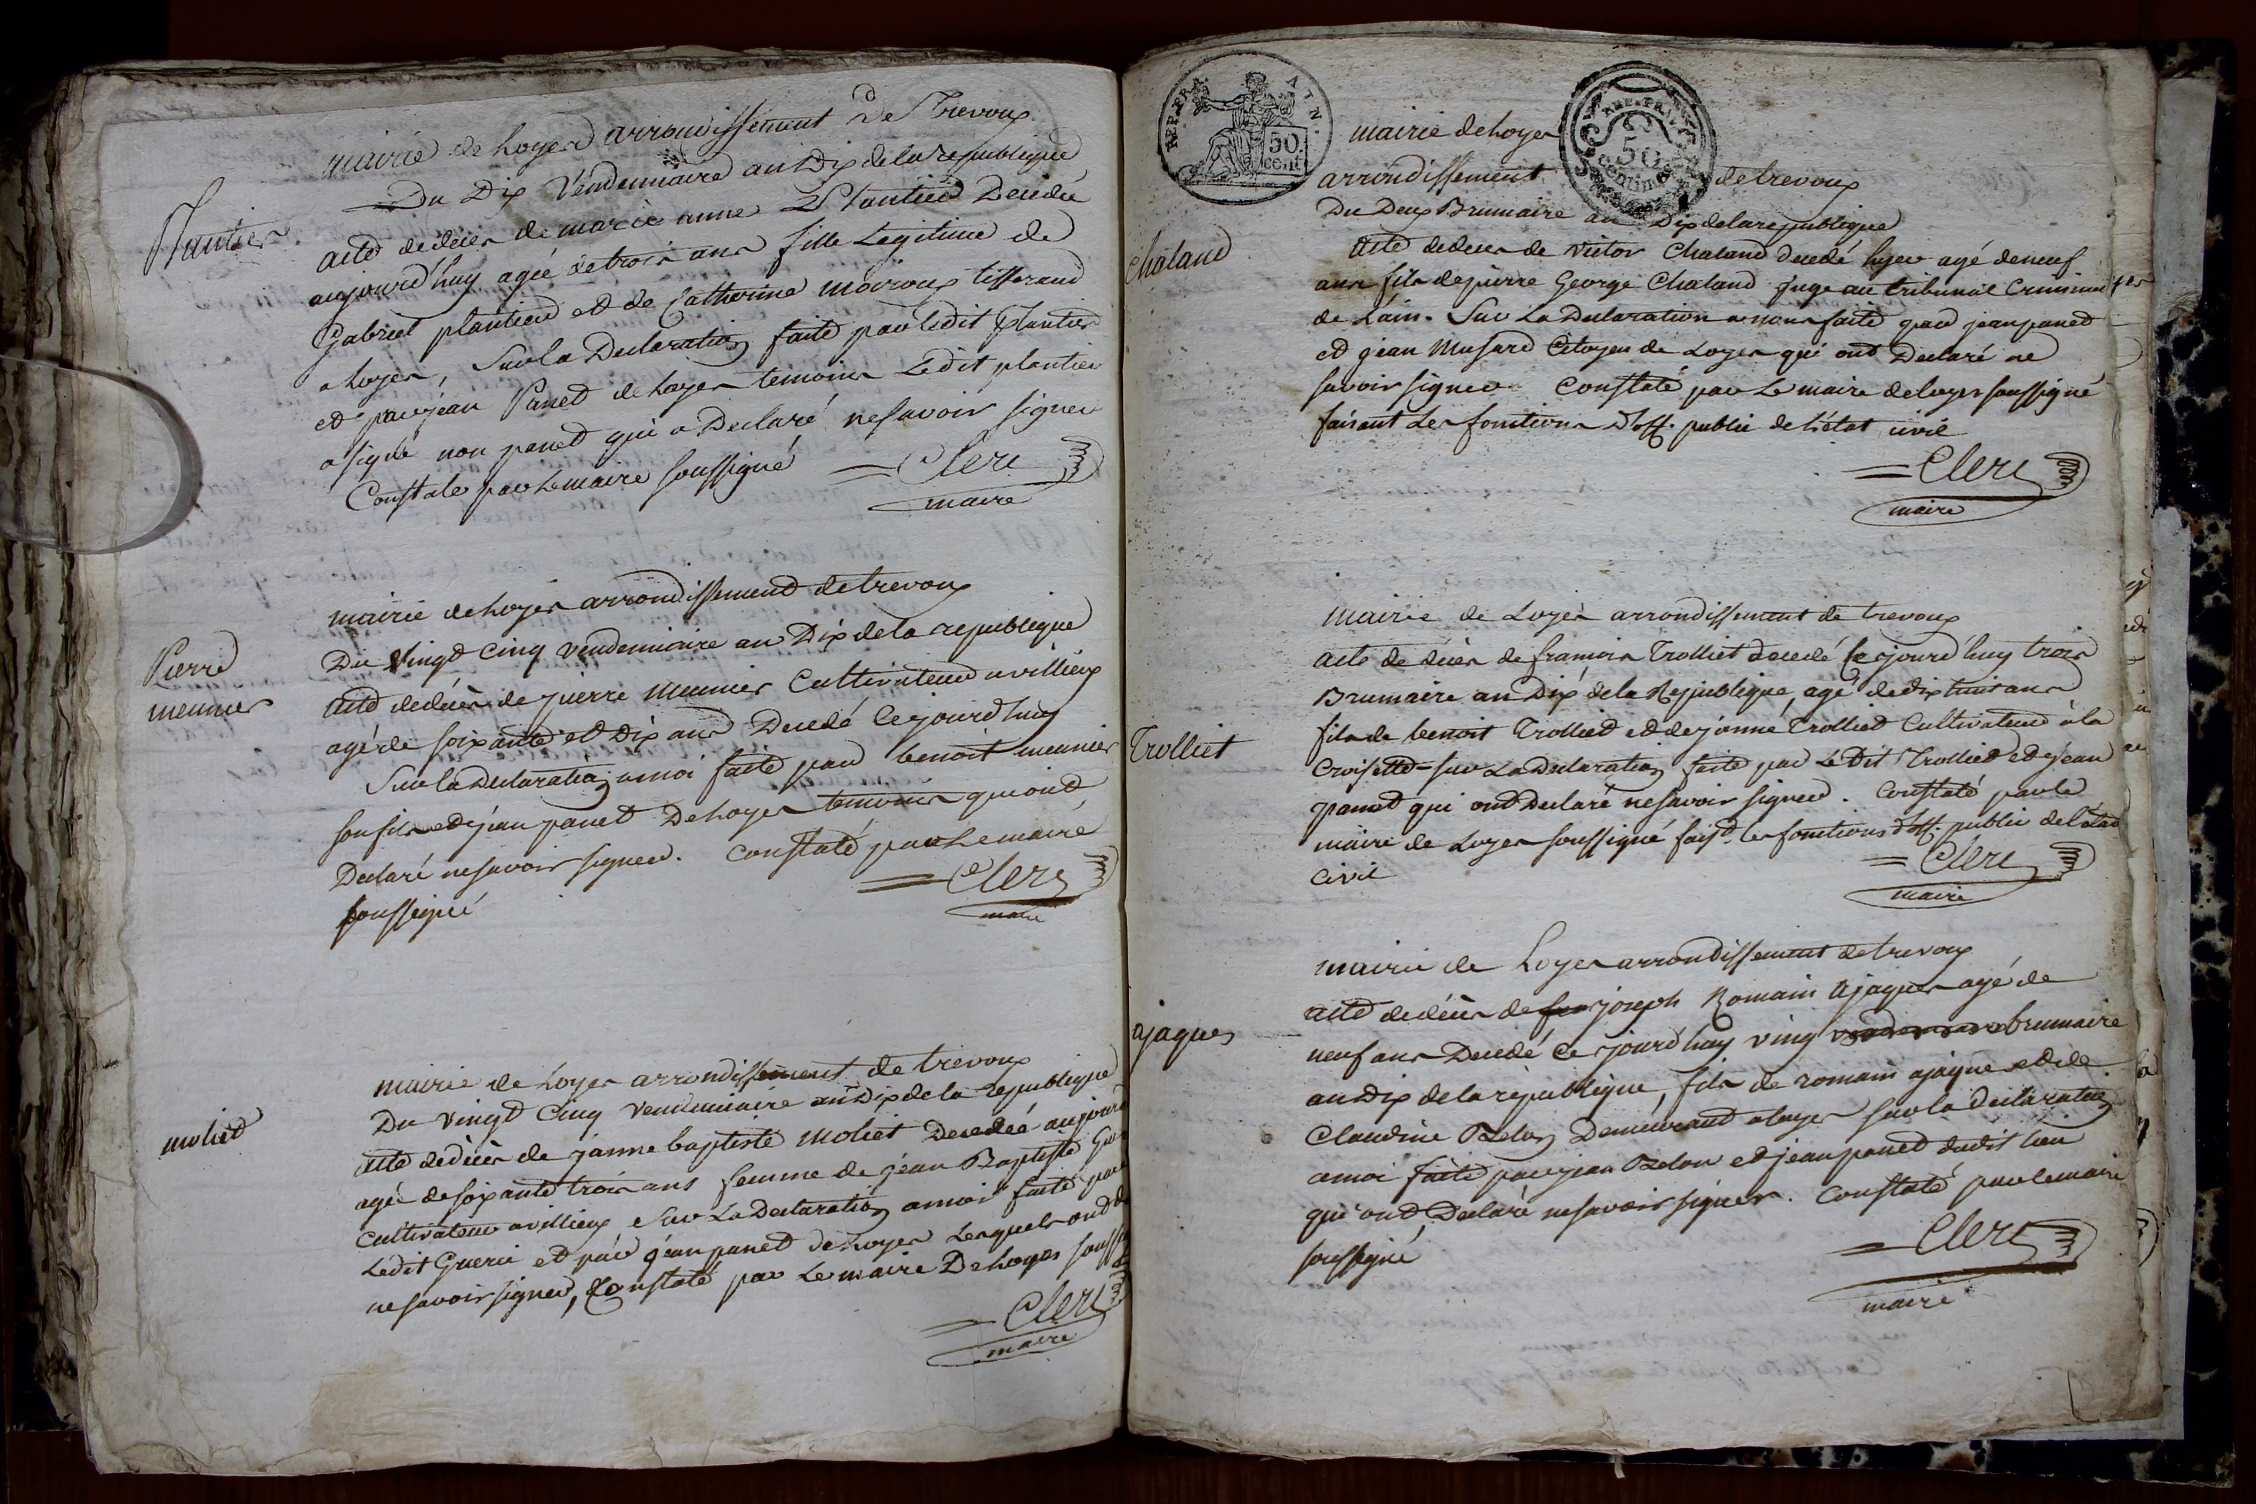 Plantier
mairie de Loyes arrondissement De Trevoux
Du Dix Vendemiaire an Dix de la republique
acte de déces de marie anne Plantier Decedée
aujourd'huy agée de trois ans fille Légitime de
Gabriel plantier et de Catherine moiroux tisserand
a Loyes, Sur la Declaration faite par ledit Plantier
et par jean Panet de Loyes temoins Ledit plantier
a signé non panet qui a Declaré ne savoir signer
Constaté par Le maire soussigné
= Clerc
maire
Pierre
meunier
mairie de Loyes arrondissement de trevoux
Du Vingt Cinq vendemiaire an Dix de la republique
acte de décès de pierre meunier Cultivateur a villieux
agé de soixante et Dix ans Decedé Ce jourd'huy
Sur la Declaration a moi faite par benoit meunier
son fils et de jean panet De Loyes temoins qui ont
Declaré ne savoir signer. Constaté par Le maire
soussigné
= Clerc
maire
moliet
mairie de Loyes arrondissement de trevoux
Du Vingt Cinq Vendemiaire an Dix de la republique
acte de décès de janne baptiste moliet Decedée aujourd
agée de soixante trois ans femme de jean Baptiste Guer
Cultivateur a villieux Sur La Declaration a moi faite par
Ledit Gueric et par jean panet de Loyes Lesquels ont d
ne savoir signer, Constaté par Le maire De Loyes souss
= Clerc
maire
REP. FRA ATN.
50 cent
REP. FRA
50 centimes
mairie de Loyes
arrondissement de trevoux
Du Deux Brumaire an Dix de la republique
Chaland
Acte de deces de victor Chaland decedé hyer agé de neuf
ans fils de pierre George Chaland juge au tribunal Criminel
de L'ain. Sur La Declaration a nous faite par jean panet
et jean Musard Citoyen de Loyes qui ont Declaré ne
savoir signer Constaté par Le maire de loyes soussigné
faisant Les fonctions D'off. public de l'état civil
= Clerc
maire
mairie de Loyes arrondissement de trevoux
Acte de décès de francois Trolliet decedé Ce jourd'huy trois
Brumaire an Dix de la Republique, agé de dix huit ans
fils de benoit Trolliet et de janne Trolliet Cultivateur à la
Trolliet
Croisette - sur La Declaration faite par Le Dit Trolliet et jean
panet qui ont Declaré ne savoir signer. Constaté par le
maire de Loyes soussigné fais.t les fonctions d'off. public de l'état
civil
= Clerc
maire
mairie de Loyes arrondissement de trevoux
ajaques
acte de décès de fra joseph Romain Ajaques agé de
neuf ans Decedé Ce jourd'huy ving vendemiaire brumaire
an Dix de la republique, fils de romain ajaque et de
Claudine Belon Demeurant a loyes sur la declaration
a moi faite par jean Belon et jean panet dudit lieu
qui ont Declaré ne savoir signer. Constaté par le maire
soussigné
= Clerc
maire